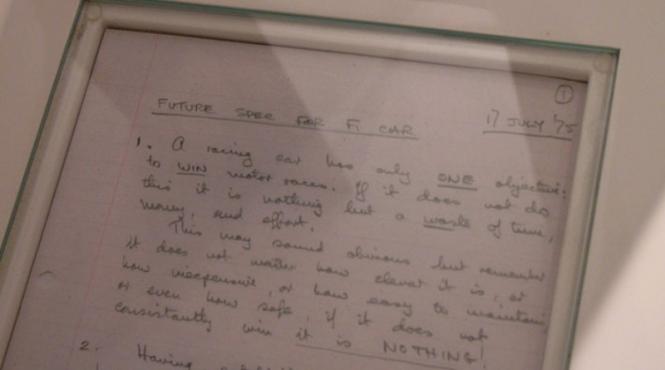 ①
FUTURE SPEC FOR F1 CAR
17 JULY '75
1. A racing car has only ONE objective:
to WIN motor races. If it does not do
this it is nothing but a waste of time,
money, and effort.
This may sound obvious but remember
it does not matter how clever it is, or
how inexpensive, or how easy to maintain,
or even how safe, if it does not
consistantly win it is NOTHING!
2. Having